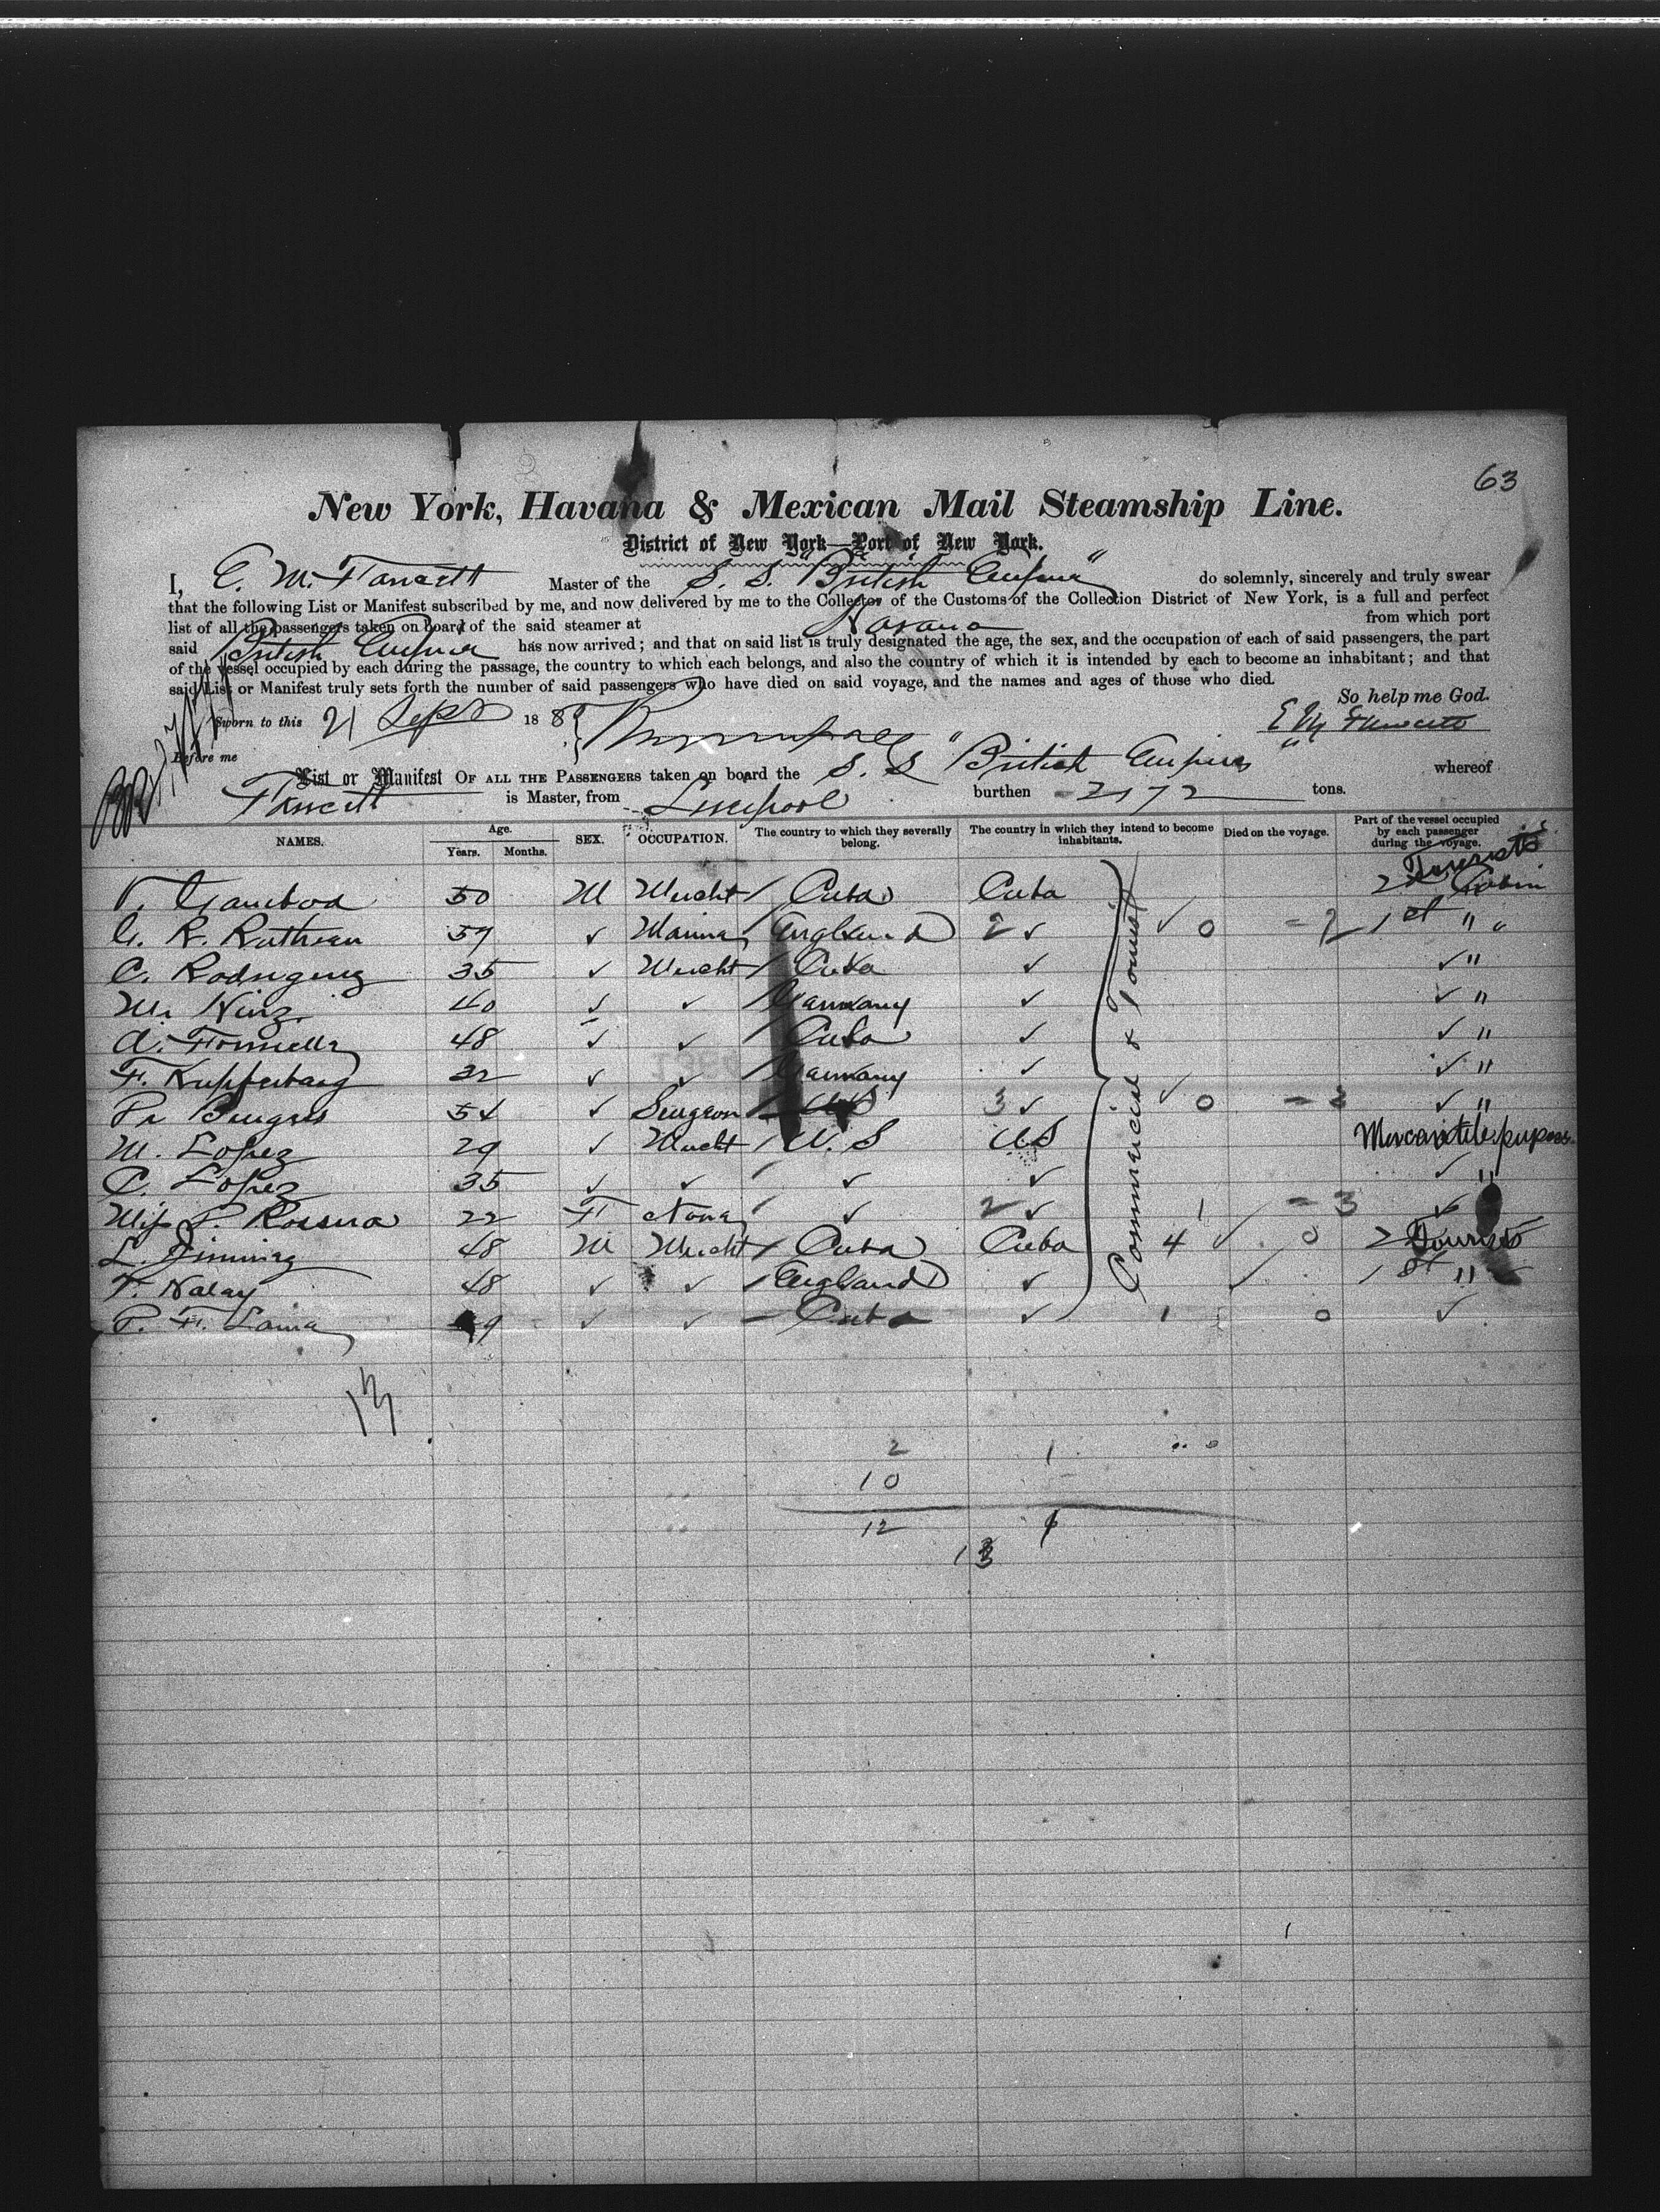 63
New York, Havana & Mexican Mail Steamship Line.
District of New York—Port of New York.
I, E. M. Fawcett Master of the S. S. "British Empire" do solemnly, sincerely and truly swear
that the following List or Manifest subscribed by me, and now delivered by me to the Collector of the Customs of the Collection District of New York, is a full and perfect
list of all the passengers taken on board of the said steamer at Havana from which port
said British Empire has now arrived; and that on said list is truly designated the age, the sex, and the occupation of each of said passengers, the part
of the vessel occupied by each during the passage, the country to which each belongs, and also the country of which it is intended by each to become an inhabitant; and that
said List or Manifest truly sets forth the number of said passengers who have died on said voyage, and the names and ages of those who died.
So help me God.
Sworn to this 21 Sept 188
E M Fawcett
Before me
List or Manifest OF ALL THE PASSENGERS taken on board the S. S "British Empire" whereof
Fawcett is Master, from Liverpool burthen 2172 tons.
NAMES. Age. Years. Months. SEX. OCCUPATION. The country to which they severally belong. The country in which they intend to become inhabitants. Died on the voyage. Part of the vessel occupied by each passenger during the voyage.
Tourists
V. Gamboa 50 M Mercht / Cuba Cuba 2d Cabin
G. R. Ruthven 59 ✓ England 2 ✓ ✓ 0 = 2 1st " "
C. Rodriguez 35 ✓ Mercht / Cuba ✓ ✓ "
M. 40 ✓ ✓ / Germany ✓ ✓ "
A. 48 ✓ ✓ Cuba ✓ ✓ "
F. Kupferberg 32 ✓ ✓ / Germany ✓ ✓ "
54 ✓ Surgeon / US 3 ✓ ✓ 0 = 3 ✓ "
M. Lopez 29 ✓ Mercht / U. S US Mercantile purposes
C. Lopez 35 ✓ ✓ / ✓ ✓ ✓ "
Miss P. 22 F None / ✓ 2 ✓ 1 = 3 ✓
L. 48 M Mercht / Cuba Cuba 4 ✓ 0 2 Tourists
T. Nalay 48 ✓ ✓ / England ✓ ✓ 1st "
P. F. Lama 9 ✓ ✓ - Cuba ✓ 1 0 ✓
Commercial & Tourist
13
2 1
10
12 1
13